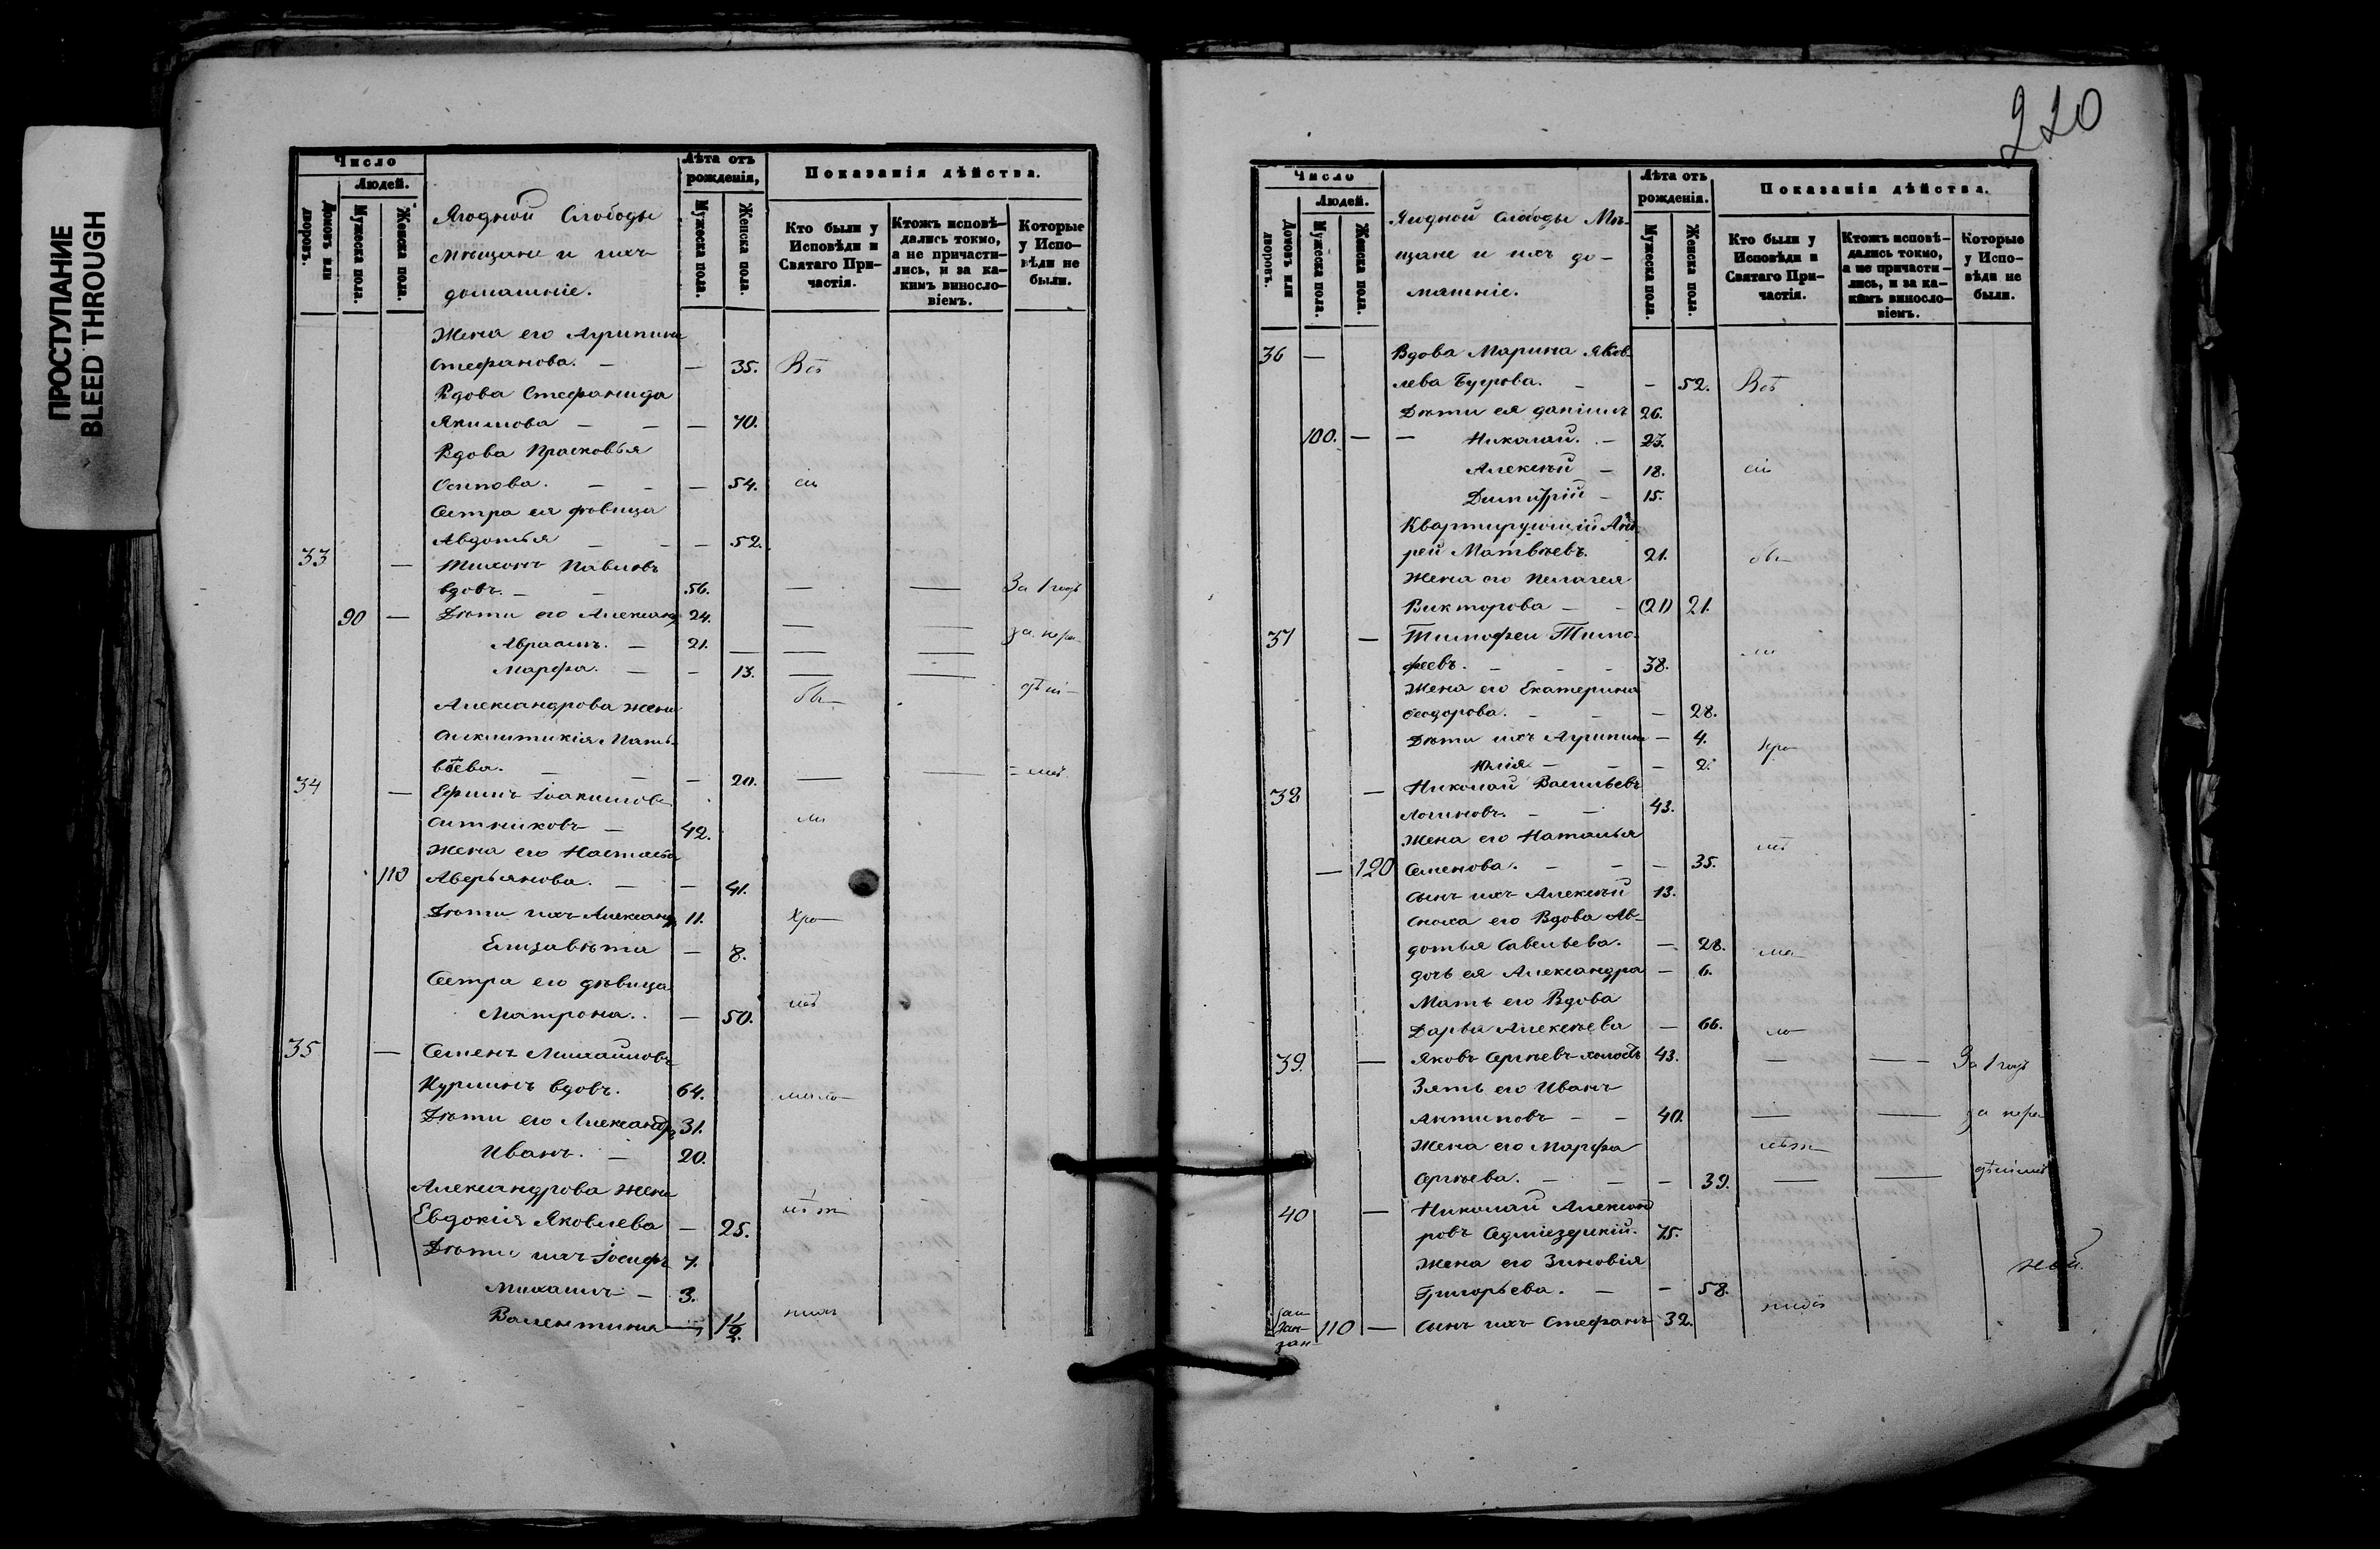 ПРОСТУПАНИЕ
BLEED THROUGH
Число
Людей.
Домовъ или дворовъ.
Мужеска пола.
Женска пола.
Ягодной Слободы
мѣщане и ихъ
домашніе.
Лѣта отъ рожденія,
Мужеска пола.
Женска пола.
Показанія дѣйства.
Кто были у Исповѣди и Святаго Причастія.
Ктожъ исповѣдались токмо, а не причастились, и за какимъ винословіемъ.
Которые у Исповѣди не были.
Жена его Агрипина
Стефанова. — — 35. Всѣ
Вдова Стефанида
Якимова — — — 70.
Вдова Прасковья
Осипова. — — — 54. сіи
Сестра ея дѣвица
Авдотья — — — 52.
33 — Тихонъ Павловъ
вдовъ. — — 56. — — За 1 годъ
90 — Дѣти его Александръ 24. — — за нера-
Авраамъ. — 21. — — —
Марфа. — — 13. — —
Александрова жена бы- дѣні-
Синклитикія Матѣ-
вѣева. — — — 20. — — = емъ.
34 — Ефимъ Іоакимовъ
Ситниковъ — 42. ли
Жена его Настасья
110 Аверьянова. — — 41.
Дѣти ихъ Александръ 11. Хри-
Елизавѣта — 8.
Сестра его дѣвица
Матрона. — 50.
35 — Семенъ Михайловъ
Курминъ вдовъ. 64.
Дѣти его Александръ 31.
Иванъ. — 20.
Александрова жена
Евдокія Яковлева — 25.
Дѣти ихъ Іосифъ 7.
Михаилъ — 3.
Валентина — 1½.
220
Число
Людей.
Домовъ или дворовъ.
Мужеска пола.
Женска пола.
Ягодной Слободы Мѣ-
щане и ихъ до-
машніе.
Лѣта отъ рожденія.
Мужеска пола.
Женска пола.
Показанія дѣйства.
Кто были у Исповѣди и Святаго Причастія.
Ктожъ исповѣдались токмо, а не причастились, и за какимъ винословіемъ.
Которые у Исповѣди не были.
36 — Вдова Марина Яков-
лева Бугрова. — — 52. Всѣ
Дѣти ея Даніилъ 26.
100. — — Николай. — 23.
Алексѣй — 18. сіи
Димитрій — 15.
Квартирующій Анд-
рей Матвѣевъ. 21. бы-
Жена его Пелагея
Викторова — — (21) 21.
37 — Тимофей Тимо-
феевъ. — — — 38. ли
Жена его Екатерина
Феодорова. — — — 28.
Дѣти ихъ Агрипина — 4. Хри-
Юлія. — — — 2.
38 — Николай Васильевъ
Логиновъ. — — 43.
Жена его Наталья
— 120 Семенова. — — — 35.
Сынъ ихъ Алексѣй 13.
Сноха его Вдова Ав-
дотья Савельева. — 28.
дочь ея Александра — 6.
Мать его Вдова
Дарья Алексѣева — 66.
39. — Яковъ Сергѣевъ холостъ 43. — — За 1 годъ
Зять его Иванъ
Антиповъ — — 40. — — за нера-
Жена его Марфа
Сергѣева. — — — 39. — — дѣніемъ
40 — Николай Александ-
ровъ 75.
Жена его Зиновія
Григорьева. — — 58.
110 — Сынъ ихъ Стефанъ 32.